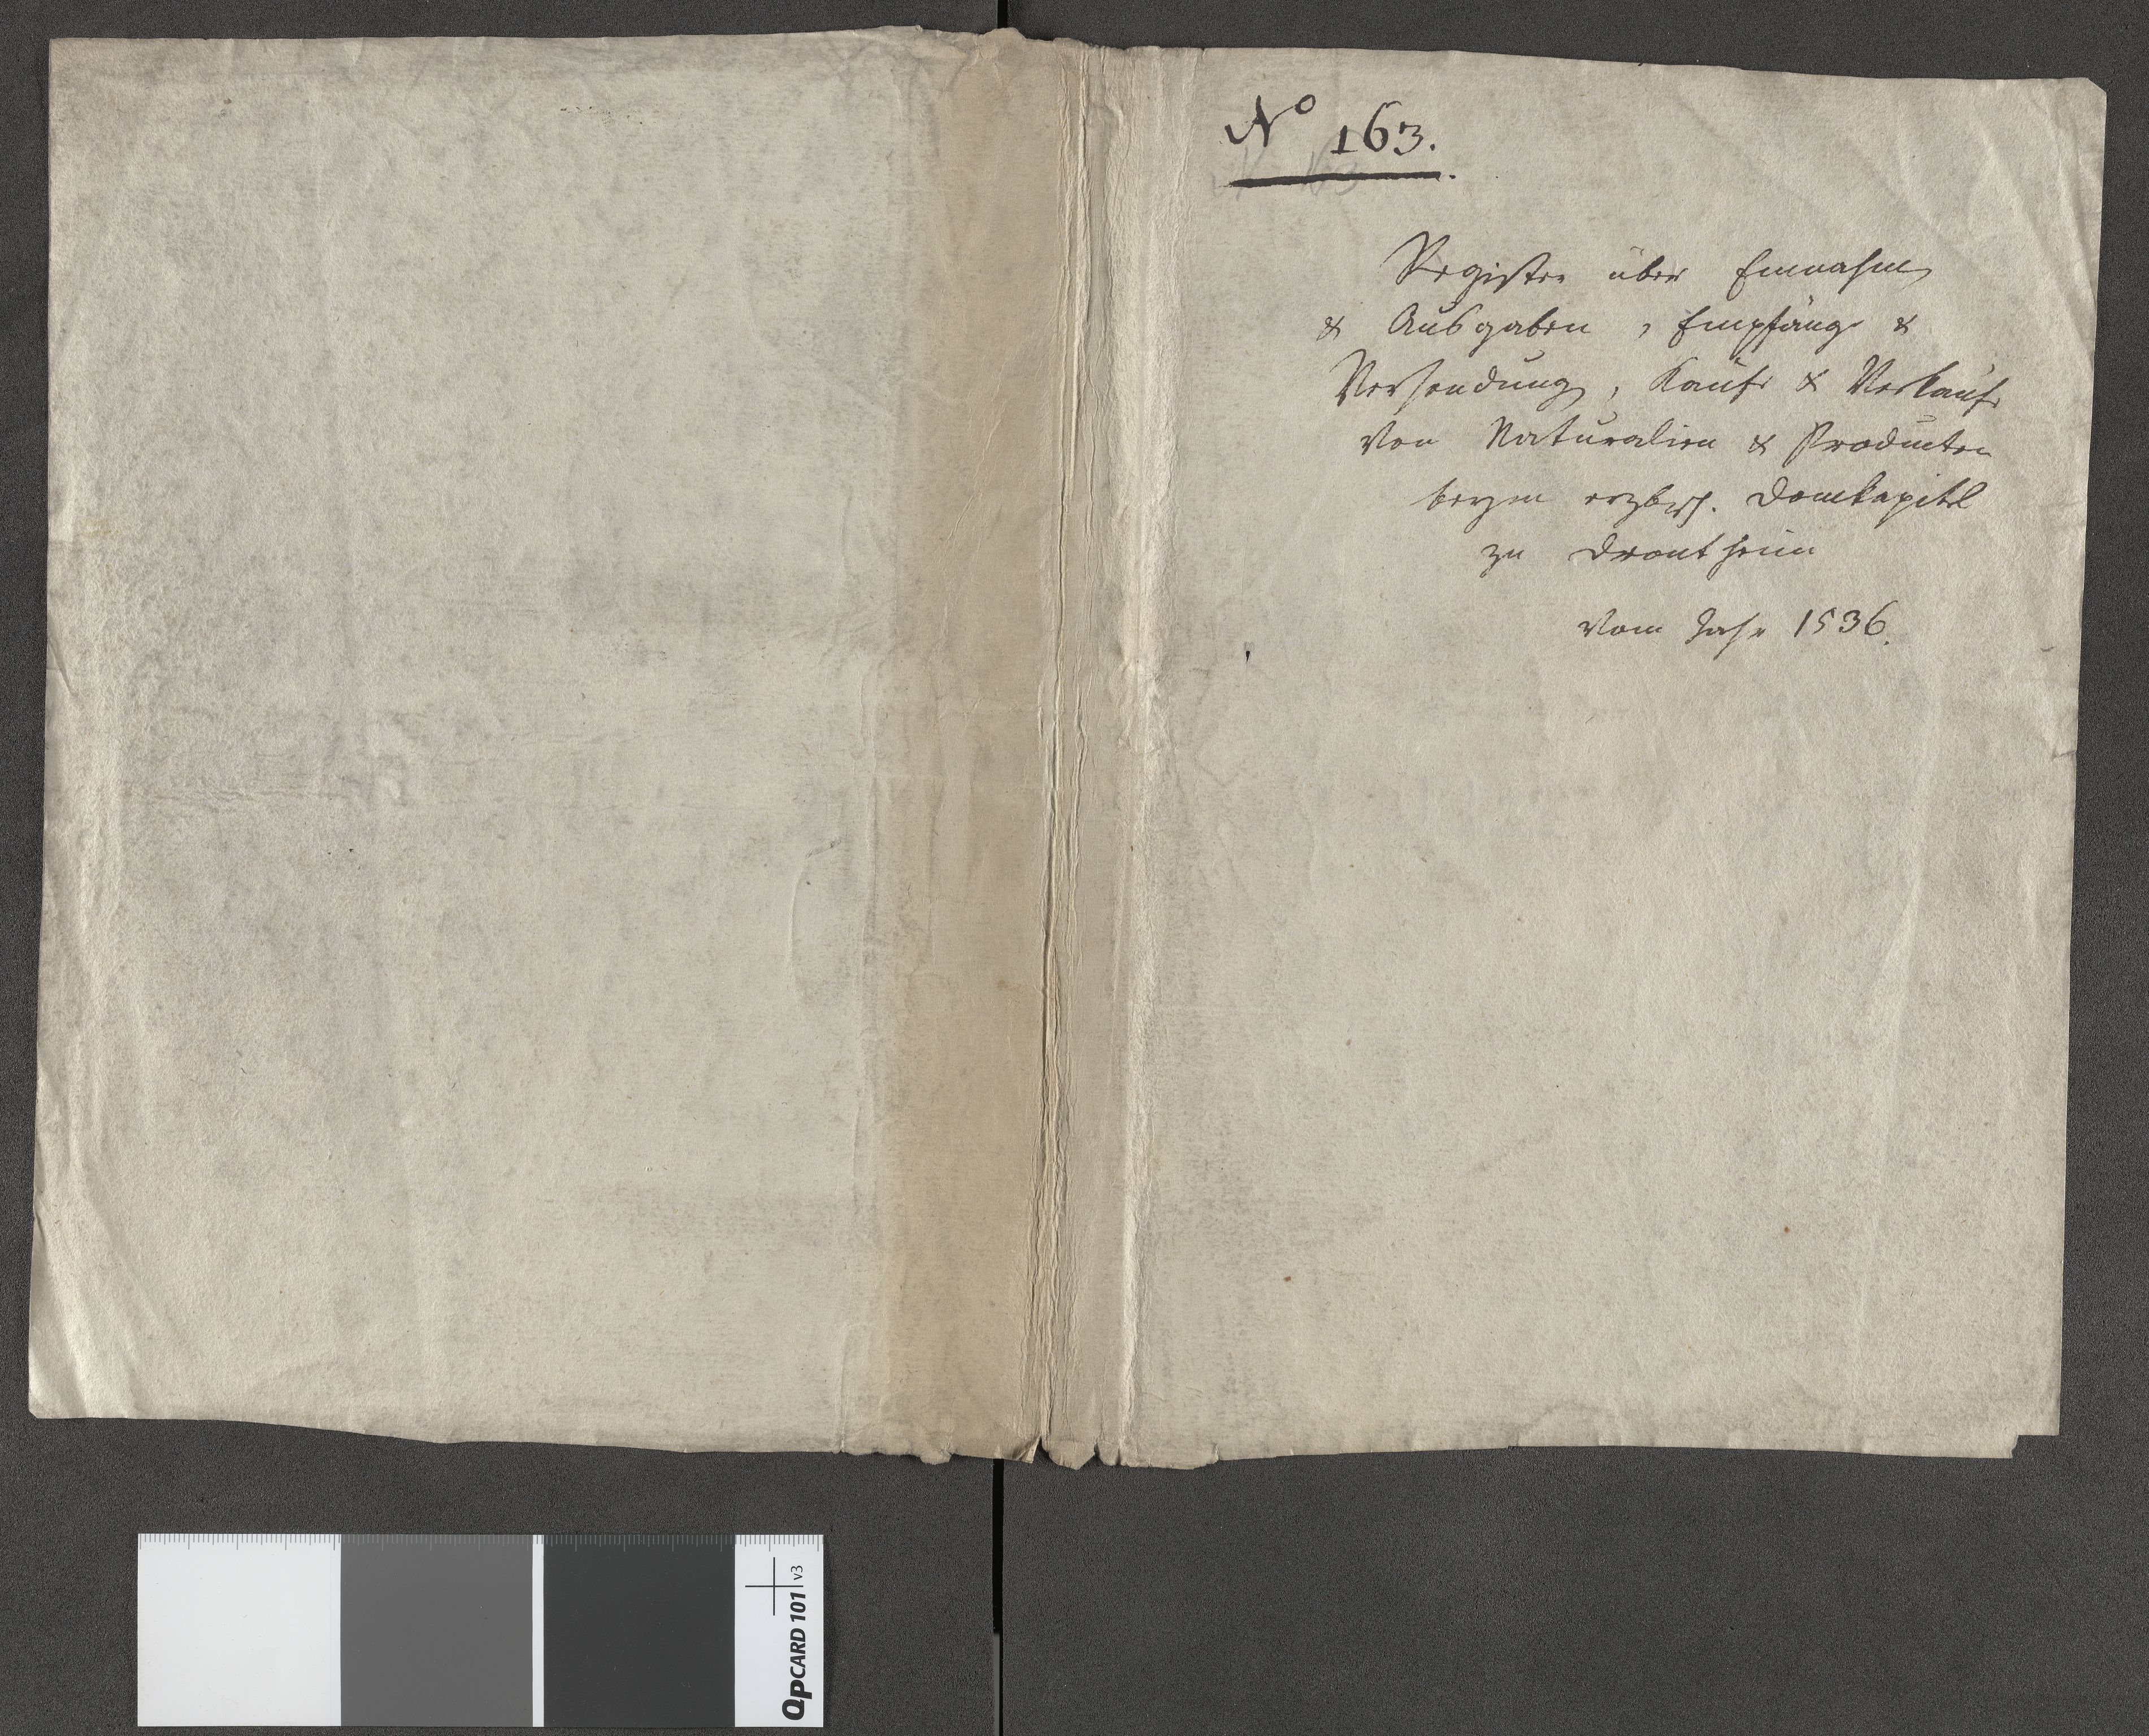 No 163.
Register über Einnahm
& Ausgaben, Empfang &
Versendung, Kaufe & Verkaufe
von Naturalien & Producten
beym erzbisch. Domkapitel
zu Drontheim
vom Jahr 1536.
QPCARD 101 v3